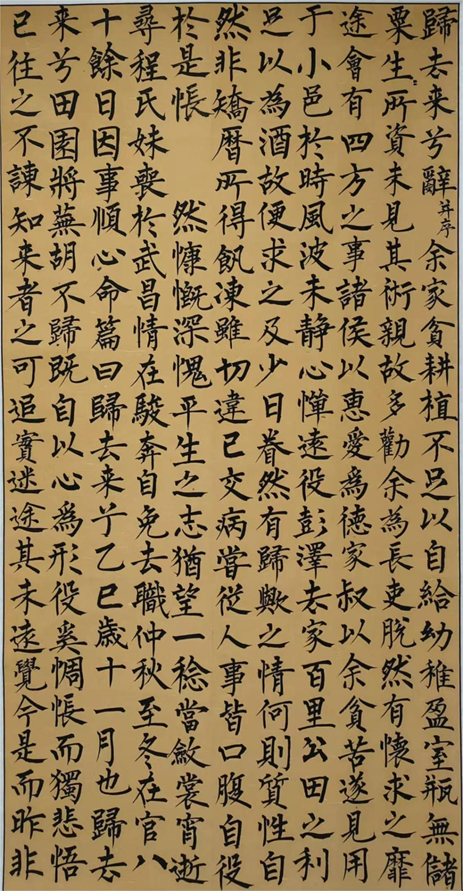 歸去来兮辭并序余家貧耕植不足以自給幼稚盈室瓶無儲
粟生所資未見其術親故多勸余為長吏脫然有懷求之靡
途會有四方之事諸侯以惠愛為德家叔以余貧苦遂見用
于小邑於時風波未静心憚遠役彭澤去家百里公田之利
足以為酒故便求之及少日眷然有歸歟之情何則質性自
然非矯曆所得飢凍雖切違已交病嘗從人事皆口腹自役
於是悵 然慷慨深愧平生之志猶望一稔當斂裳宵逝
尋程氏妹喪於武昌情在駿奔自免去職仲秋至冬在官八
十餘日因事順心命篇曰歸去来兮乙巳歲十一月也歸去
来兮田園將蕪胡不歸既自以心為形役奚惆悵而獨悲悟
已往之不諫知来者之可追實迷途其未遠覺今是而昨非